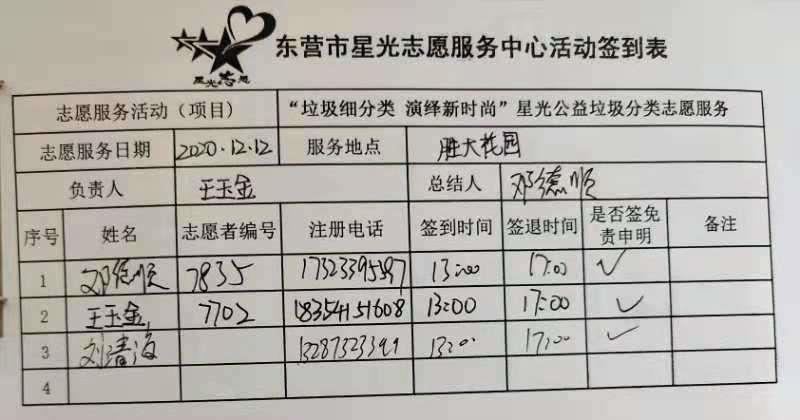 星光志愿
东营市星光志愿服务中心活动签到表
志愿服务活动（项目） “垃圾细分类 演绎新时尚”星光公益垃圾分类志愿服务
志愿服务日期 2020.12.12 服务地点 胜大花园
负责人 王玉金 总结人 邓德顺
序号 姓名 志愿者编号 注册电话 签到时间 签退时间 是否签免责申明 备注
1 邓德顺 7835 13:00 17:00 ✓
2 王玉金 7702 18354151608 13:00 17:00 ✓
3 刘清海 13287323399 13:00 17:00 ✓
4